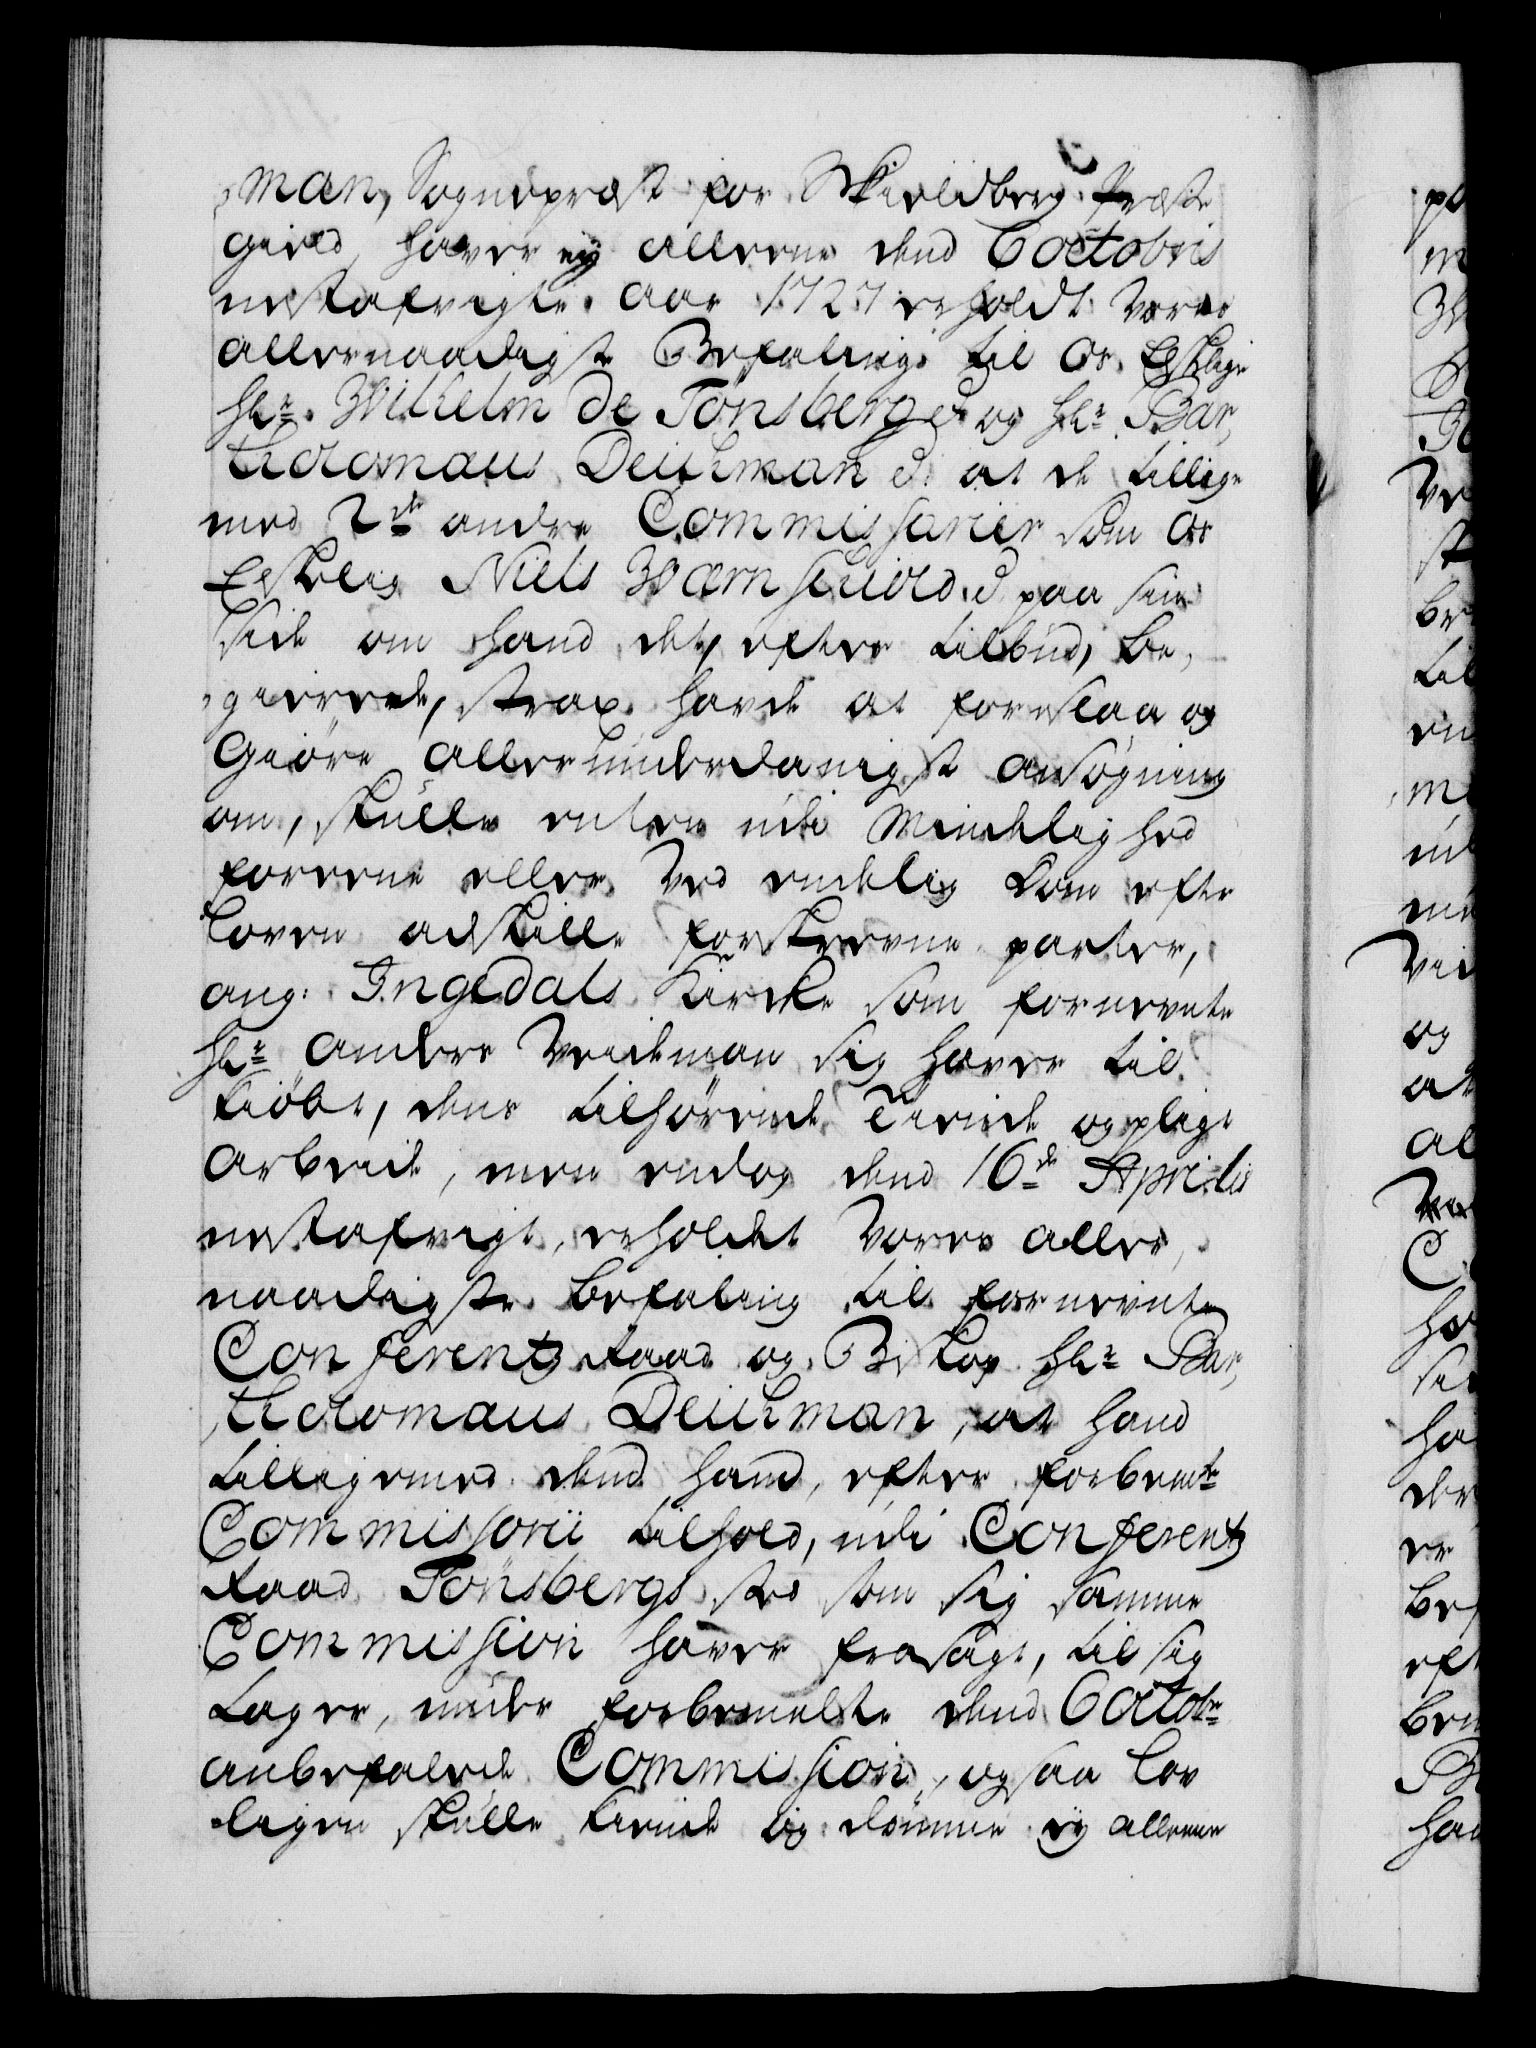 man, Sognepræst for Skieldberg Præste
gield, haver ey alleene dend 6 octobris
nestafvigte aar 1727 erholdt Vores
allernaadigste Befaling til Os Elskelige
Hr. Wilhelm de Tönsberg d og Hr. Bar,
tholomæus Deichman d: at de tillige
med 2de andre Commissarier som Os
Elskelig Niels Wærnschiold d paa sin
side om hand det, efter tilbud, be,
gierede, strax havde at foreslaa og
Giöre allerunderdanigst ansögning
om, skulle enten udi Mindelighed
foreene eller Ved endelig Dom efter
Loven adskille forskrevne parter,
ang: Ingedals Kirke som fornevnte
Hr. Anders Weideman sig haver til
kiöbt, dens tilhörende Tiende og pligt
Arbeide, men endog dend 16de Aprilis
nestafvigt, erholdet Vores aller,
naadigste befaling til fornevnte
Conferentz Raad og Biskop Hr. Bar,
tholomæus Deichman, at hand
tilligemed dend hand, efter forbemte
Commissorii tilhold, udi Conferentz
Raad Tönsbergs sted som sig samme
Commission haver frasagt, til sig
tager, under forbemelte dend 6 octobr
anbefalede Commission, og saa Lov
ligen skulle kiende og dömme ey alleene